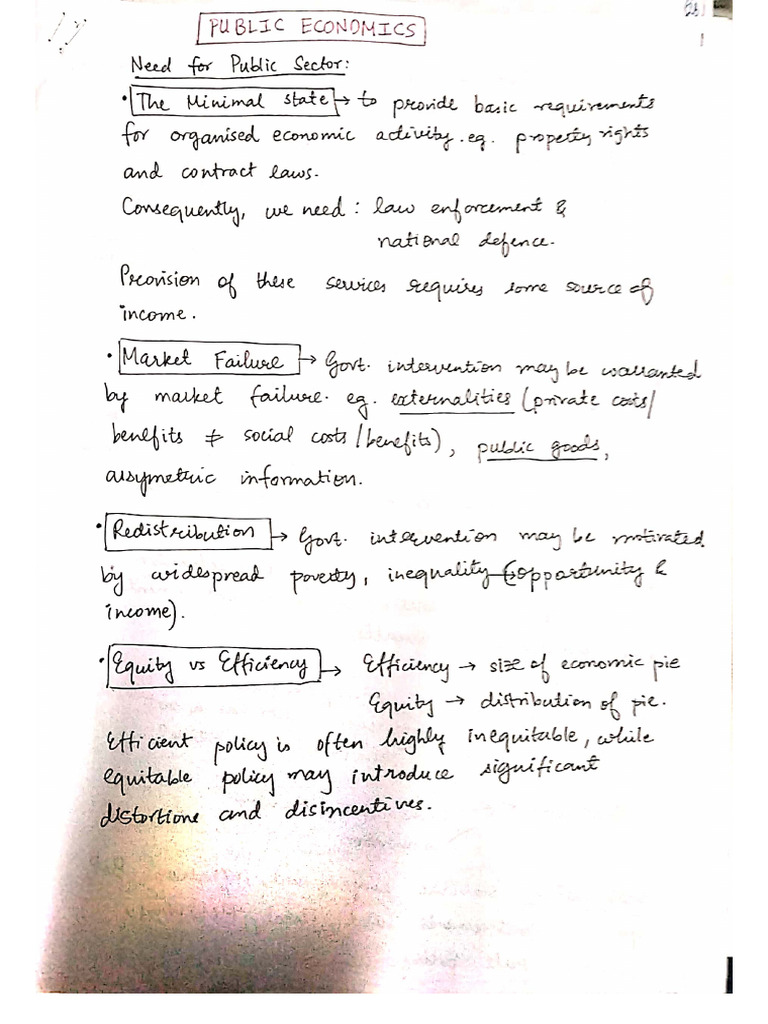 PUBLIC ECONOMICS
1
Need for Public Sector:
• The Minimal state → to provide basic requirements
for organised economic activity. eg. property rights
and contract laws.
Consequently, we need : law enforcement &
national defence.
Provision of these services requires some source of
income.
• Market Failure → Govt. intervention may be warranted
by market failure. eg. externalities (private costs/
benefits ≠ social costs/benefits), public goods,
assymetric information.
• Redistribution → Govt. intervention may be motivated
by widespread poverty, inequality (opportunity &
income).
• Equity vs Efficiency → Efficiency → size of economic pie
Equity → distribution of pie.
Efficient policy is often highly inequitable, while
equitable policy may introduce significant
distortions and disincentives.